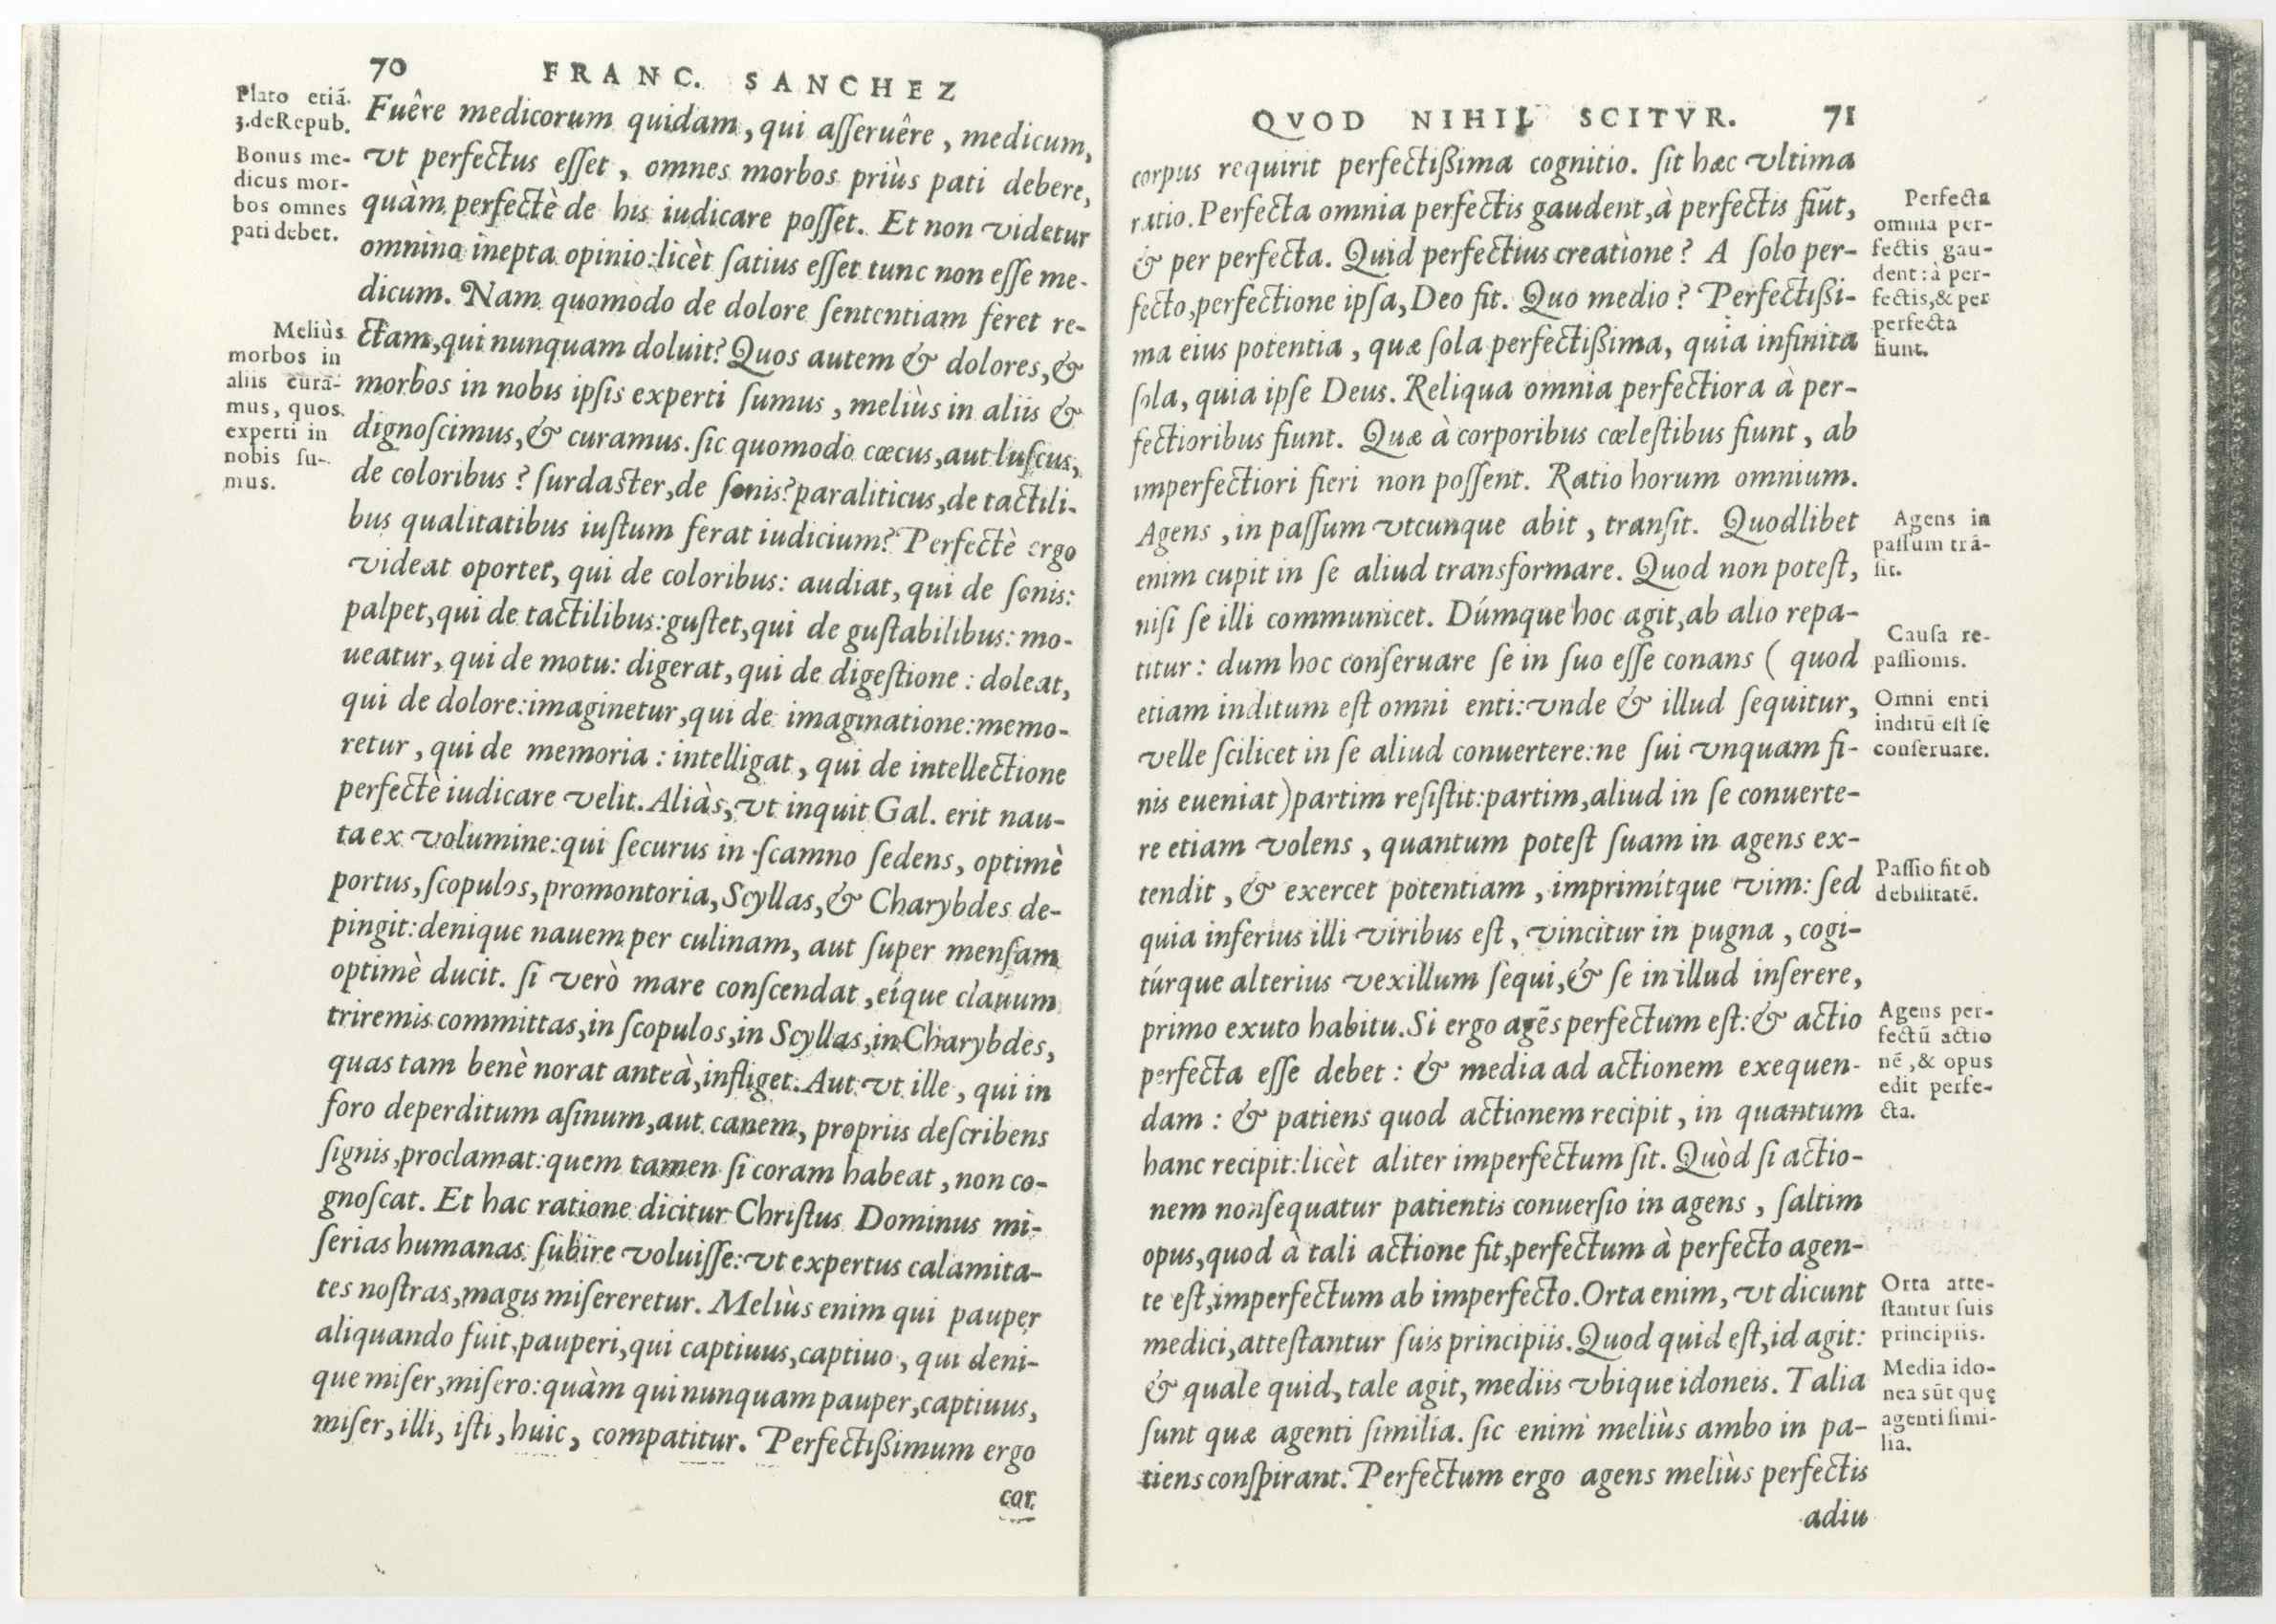 70 FRANC. SANCHEZ
Plato etiā.
3. de Repub.
Bonus me-
dicus mor-
bos omnes
pati debet.
Meliùs
morbos in
aliis curā-
mus, quos
experti in
nobis su-
mus.
Fuêre medicorum quidam, qui aſſeruêre, medicum,
vt perfectus eſſet, omnes morbos priùs pati debere,
quàm perfectè de his iudicare poſſet. Et non videtur
omnino inepta opinio: licèt ſatius eſſet tunc non eſſe me-
dicum. Nam quomodo de dolore ſententiam feret re-
ctam, qui nunquam doluit? Quos autem & dolores, &
morbos in nobis ipſis experti ſumus, meliùs in aliis &
dignoſcimus, & curamus. ſic quomodo cæcus, aut luſcus,
de coloribus? ſurdaſter, de ſonis? paraliticus, de tactili-
bus qualitatibus iuſtum ferat iudicium? Perfectè ergo
videat oportet, qui de coloribus: audiat, qui de ſonis:
palpet, qui de tactilibus: guſtet, qui de guſtabilibus: mo-
ueatur, qui de motu: digerat, qui de digeſtione: doleat,
qui de dolore: imaginetur, qui de imaginatione: memo-
retur, qui de memoria: intelligat, qui de intellectione
perfectè iudicare velit. Aliàs, vt inquit Gal. erit nau-
ta ex volumine: qui ſecurus in ſcamno ſedens, optimè
portus, ſcopulos, promontoria, Scyllas, & Charybdes de-
pingit: denique nauem per culinam, aut ſuper menſam
optimè ducit. ſi verò mare conſcendat, eíque clauum
triremis committas, in ſcopulos, in Scyllas, in Charybdes,
quas tam benè norat anteà, infliget. Aut vt ille, qui in
foro deperditum aſinum, aut canem, propriis deſcribens
ſignis, proclamat: quem tamen ſi coram habeat, non co-
gnoſcat. Et hac ratione dicitur Chriſtus Dominus mi-
ſerias humanas ſubire voluiſſe: vt expertus calamita-
tes noſtras, magis miſereretur. Meliùs enim qui pauper
aliquando fuit, pauperi, qui captiuus, captiuo, qui deni-
que miſer, miſero: quàm qui nunquam pauper, captiuus,
miſer, illi, iſti, huic, compatitur. Perfectißimum ergo
cor
QVOD NIHIL SCITVR. 71
corpus requirit perfectißima cognitio. ſit hæc vltima
ratio. Perfecta omnia perfectis gaudent, à perfectis fiūt,
& per perfecta. Quid perfectius creatione? A ſolo per-
fecto, perfectione ipſa, Deo fit. Quo medio? Perfectißi-
ma eius potentia, quæ ſola perfectißima, quia infinita
ſola, quia ipſe Deus. Reliqua omnia perfectiora à per-
fectioribus fiunt. Quæ à corporibus cæleſtibus fiunt, ab
imperfectiori fieri non poſſent. Ratio horum omnium.
Agens, in paſſum vtcunque abit, tranſit. Quodlibet
enim cupit in ſe aliud transformare. Quod non poteſt,
niſi ſe illi communicet. Dúmque hoc agit, ab alio repa-
titur: dum hoc conſeruare ſe in ſuo eſſe conans (quod
etiam inditum eſt omni enti: vnde & illud ſequitur,
velle ſcilicet in ſe aliud conuertere: ne ſui vnquam fi-
nis eueniat) partim reſiſtit: partim, aliud in ſe conuerte-
re etiam volens, quantum poteſt ſuam in agens ex-
tendit, & exercet potentiam, imprimítque vim: ſed
quia inferius illi viribus eſt, vincitur in pugna, cogi-
túrque alterius vexillum ſequi, & ſe in illud inſerere,
primo exuto habitu. Si ergo agēs perfectum eſt: & actio
perfecta eſſe debet: & media ad actionem exequen-
dam: & patiens quod actionem recipit, in quantum
hanc recipit: licèt aliter imperfectum ſit. Quòd ſi actio-
nem non ſequatur patientis conuerſio in agens, ſaltim
opus, quod à tali actione fit, perfectum à perfecto agen-
te eſt, imperfectum ab imperfecto. Orta enim, vt dicunt
medici, atteſtantur ſuis principiis. Quod quid eſt, id agit:
& quale quid, tale agit, mediis vbique idoneis. Talia
ſunt quæ agenti ſimilia. ſic enim meliùs ambo in pa-
tiens conſpirant. Perfectum ergo agens meliùs perfectis
adiu
Perfecta
omnia per-
fectis gau-
dent: à per-
fectis, & per
perfecta
fiunt.
Agens in
paſſum trā-
ſit.
Cauſa re-
paſſionis.
Omni enti
inditū eſt ſe
conſeruare.
Paſſio fit ob
debilitatē.
Agens per-
fectū actio
nē, & opus
edit perfe-
cta.
Orta atte-
ſtantur ſuis
principiis.
Media ido-
nea sūt quę
agenti ſimi-
lia.